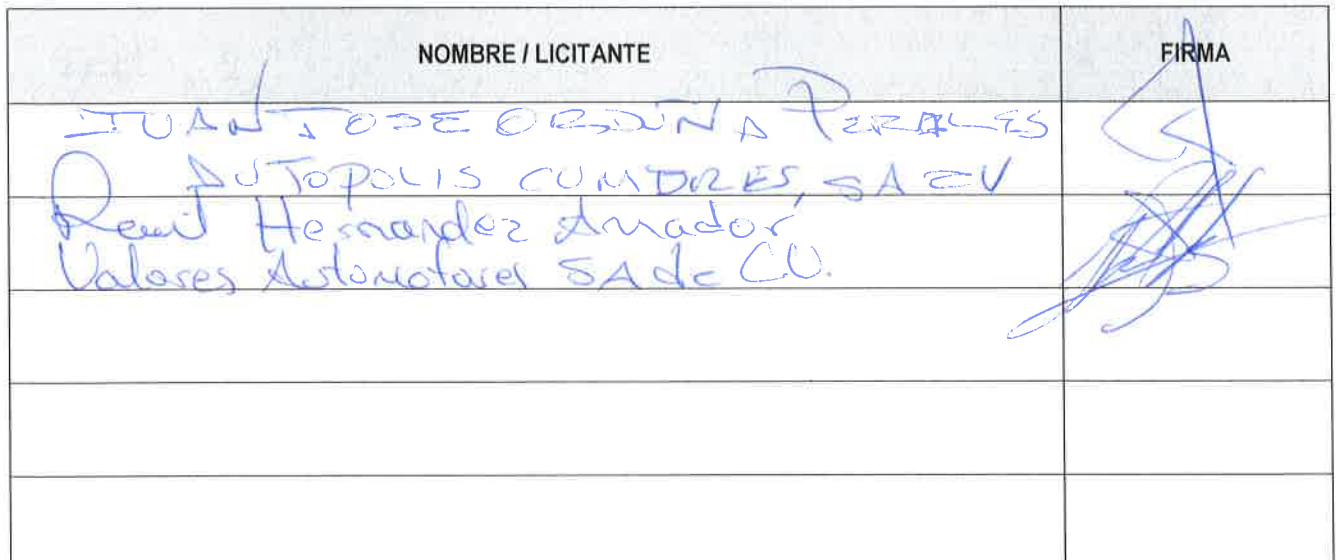 NOMBRE / LICITANTE FIRMA
JUAN JOSE ORDUÑA PERALES
AUTOPOLIS CUMBRES, SA CV
Hernandez Amador
Valores Automotores SA de CV.